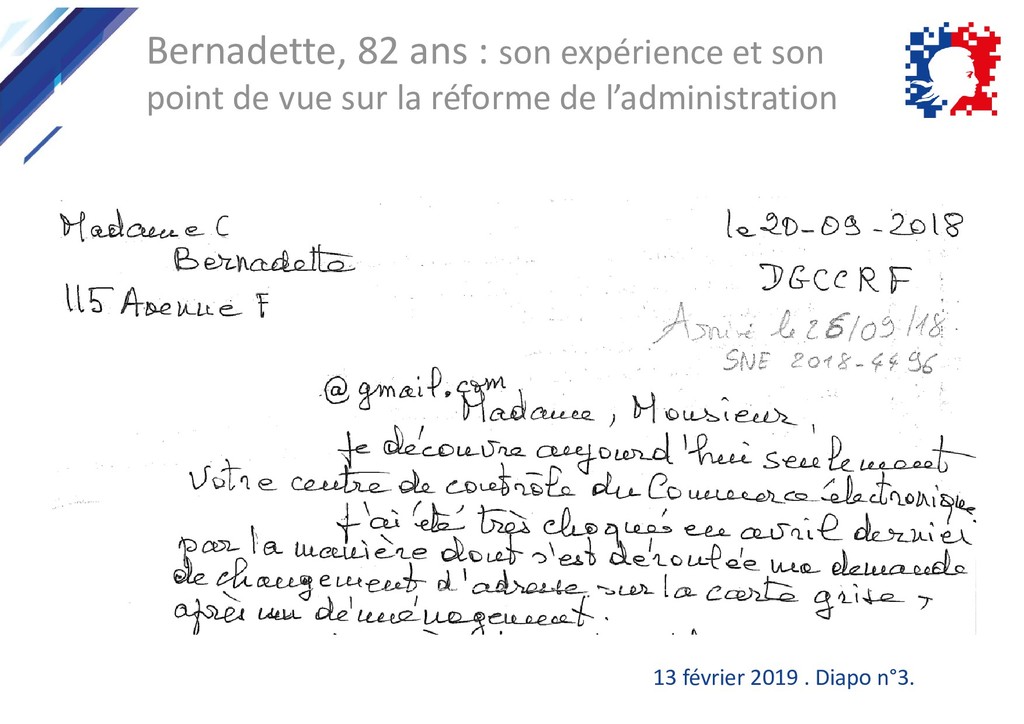 Bernadette, 82 ans : son expérience et son
point de vue sur la réforme de l'administration
Madame C
Bernadette
115 Avenue F
le 20-09-2018
DGCCRF
Arrivé le 26/09/18
SNE 2018-4496
@gmail.com
Madame, Monsieur,
Je découvre aujourd'hui seulement
Votre centre de contrôle du Commerce électronique.
J'ai été très choquée en avril dernier
par la manière dont s'est déroulée ma demande
de changement d'adresse sur la carte grise,
après un déménagement.
13 février 2019 . Diapo n°3.